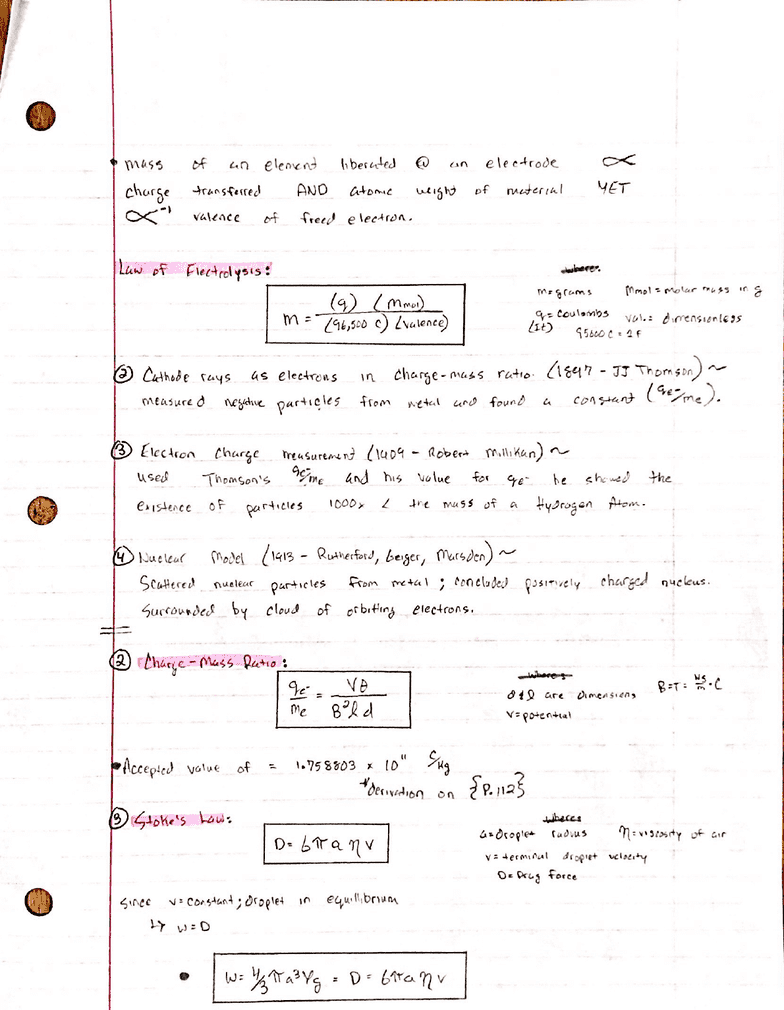 • mass of an element liberated @ an electrode ∝
charge transferred AND atomic weight of material YET
∝⁻¹ valence of freed electron.
Law of Electrolysis:
where:
m = (q) (Mmol) / (96,500 C) (valence)
m=grams Mmol = molar mass in g
q= Coulombs val.= dimensionless
(It) 95600 C = 1 F
② Cathode rays as electrons in charge-mass ratio. (1897 - JJ Thomson) ~
measured negative particles from metal and found a constant (qe-/me).
③ Electron Charge measurement (1909 - Robert Millikan) ~
used Thomson's qe-/me and his value for qe- he showed the
existence of particles 1000x < the mass of a Hydrogen Atom.
④ Nuclear Model (1913 - Rutherford, Geiger, Marsden) ~
Scattered nuclear particles from metal; concluded positively charged nucleus.
Surrounded by cloud of orbiting electrons.
② Charge-Mass Ratio:
where:
qe-/me = Vθ / B²ld
d & l are dimensions B=T= Ns/m · C
V=potential
• Accepted value of = 1.758803 x 10¹¹ C/kg
*derivation on {P.112}
③ Stoke's Law:
where:
D= 6πaηv
a=droplet radius η=viscosity of air
v= terminal droplet velocity
D= Drag force
Since v=constant; droplet in equillibrium
↳ W=D
• W= 4/3 πa³γg = D = 6πaηv